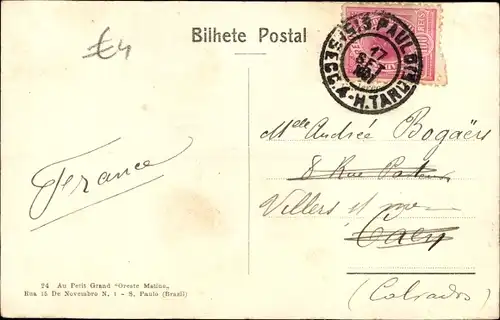 €4
Bilhete Postal
S. PAULO
17
SET
SECC. 4-H. TARDE
Mlle Andrée Bogaërs
8 Rue Pasteur
Villers s/ mer
Caen
(Calvados)
France
24 Au Petit Grand "Oreste Matina„
Rua 15 De Novembro N. 1 - S. Paulo (Brazil)